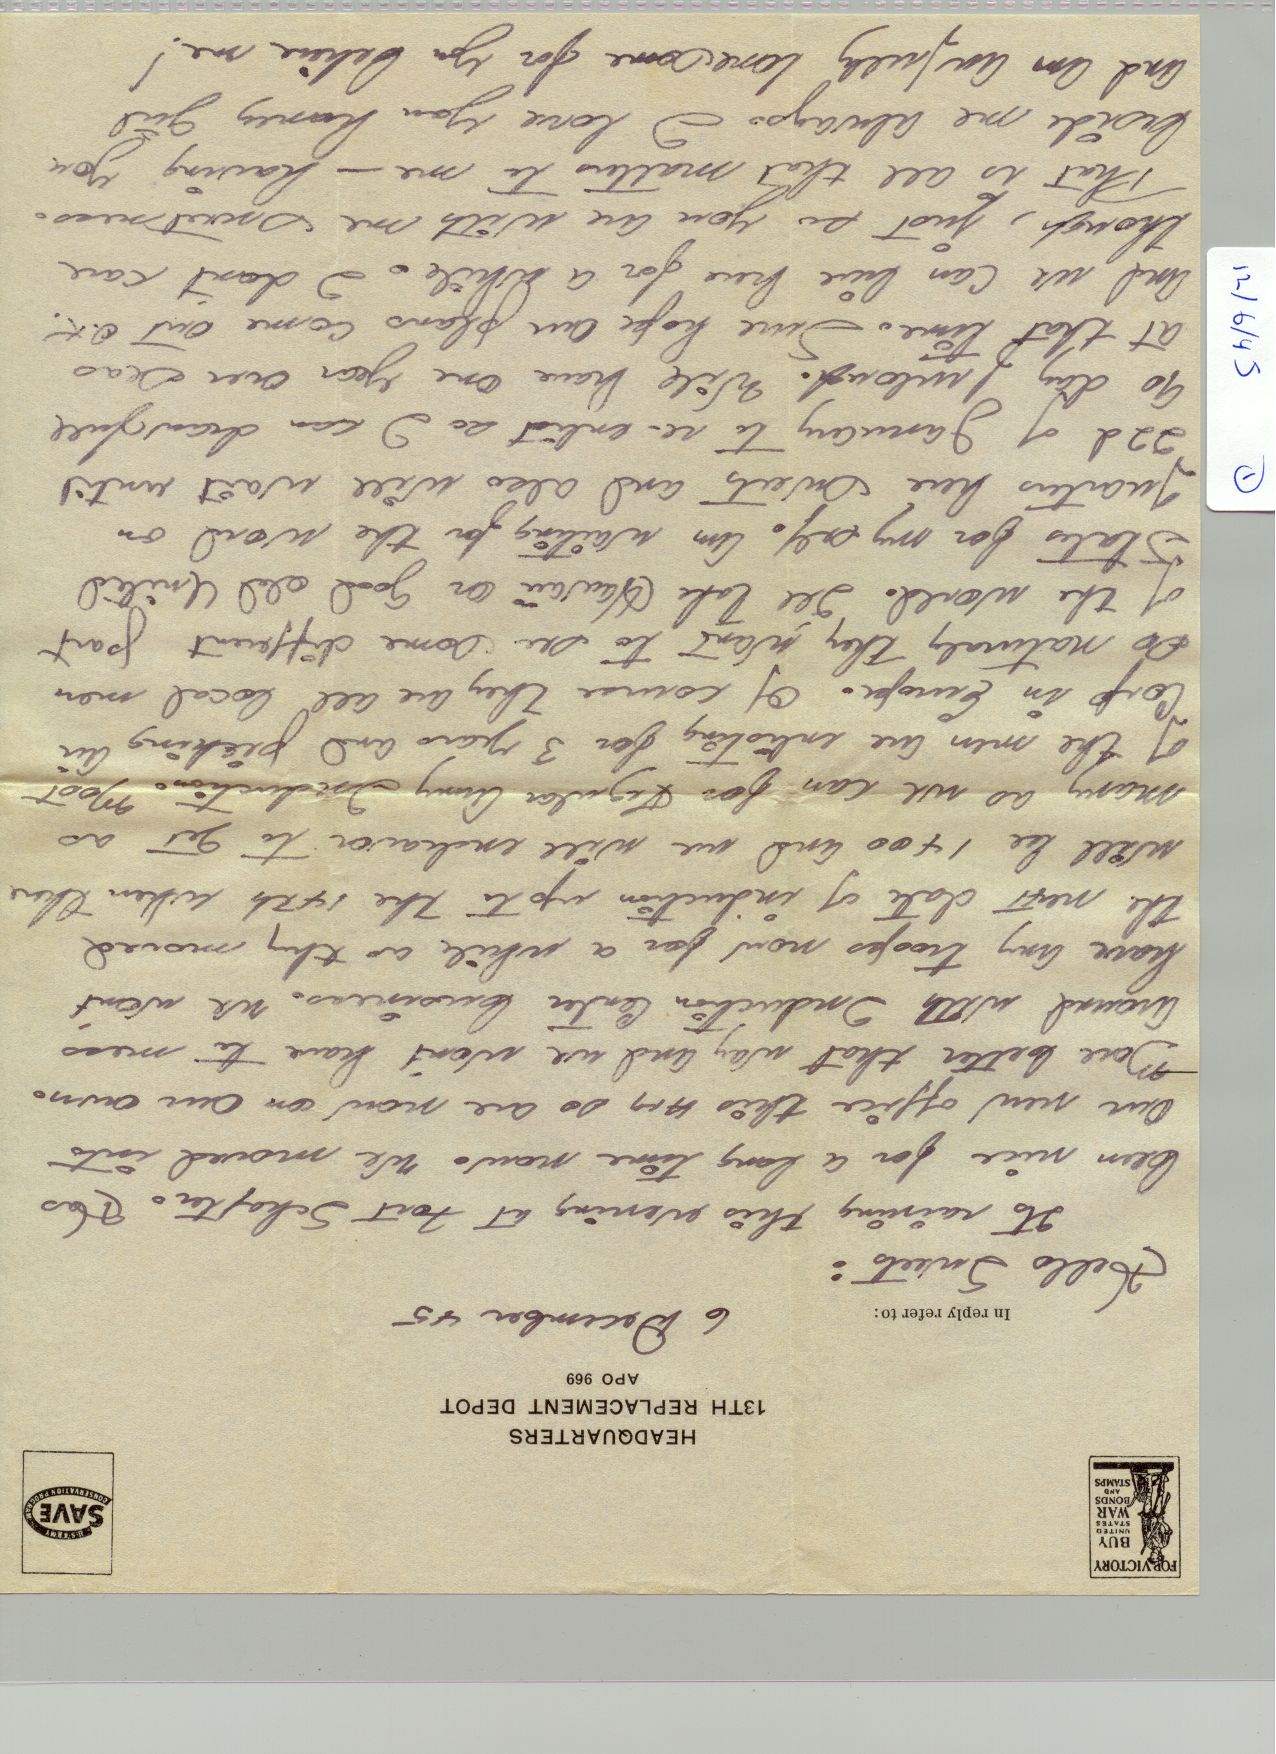 FOR VICTORY
BUY
UNITED
STATES
WAR
BONDS
AND
STAMPS
U.S. ARMY
SAVE
CONSERVATION PROGRAM
HEADQUARTERS
13TH REPLACEMENT DEPOT
APO 969
In reply refer to:
6 December 45
Hello Sweets:
Its raining this evening at Fort Schafter. Has
been nice for a long time now. We moved into
our new office this A.M so are now on our own.
More better that way and we won't have to mess
around with Induction Center business. We wont
have any troops now for a while as they moved
the next date of induction up to the 14th when there
will be 1400 and we will endeavor to get as
many as we can for Regular Army Induction. Most
of the men are enlisting for 3 years and picking Air
Corp in Europe. Of course they are all local men
so naturaly they want to see some different part
of the world. Ill take Hawaii or good old United
States for my self. Am waiting for the word on
quarters here Sweets and also will wait until
22d of January to re-enlist so I can draw full
90 day furlough. Will have one year over seas
at that time. Sure hope our plans come out o.k.
and we can live here for a while. I don't care
though, just so you are with me Sweetness.
That is all that matters to me — having you
beside me always. I love you honey girl
and am awfully lonesome for you believe me!
12/6/45
1